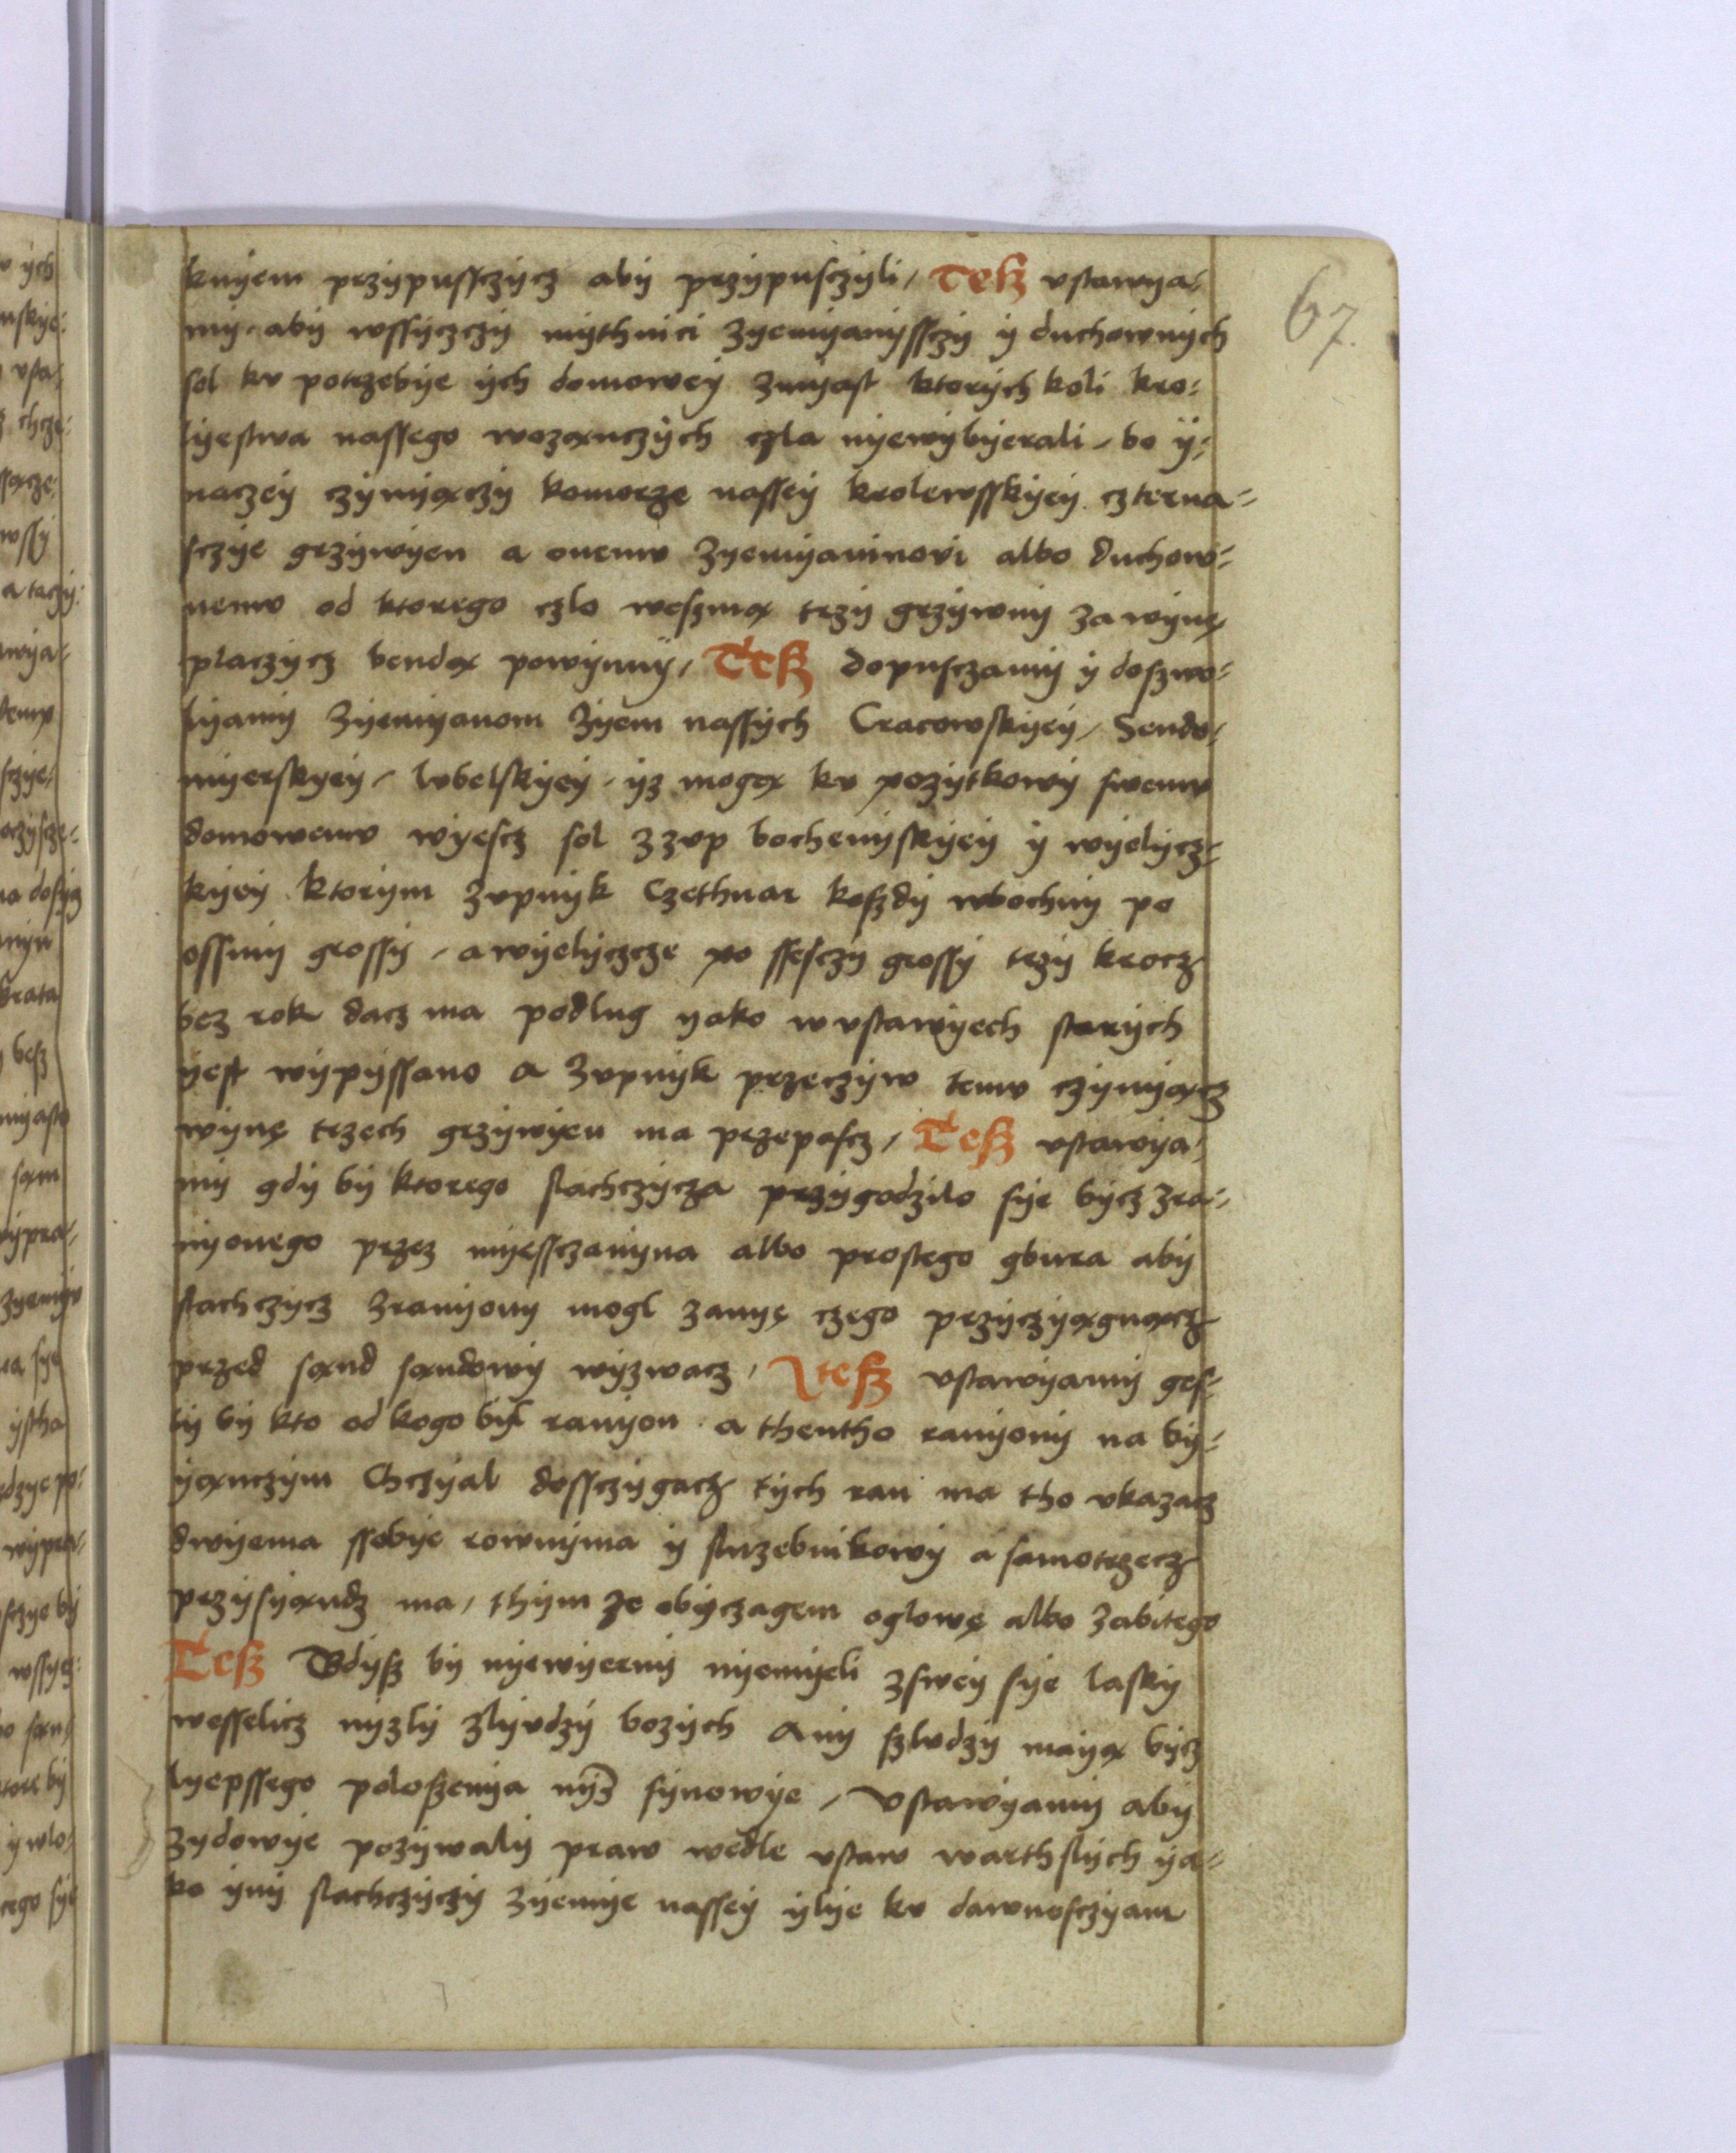 67.
knyem przypusczycz aby przypusczyli / Tesz vstawya-
my. aby wssyczczy mythnici zyemyanysczy y duchownych
sol kv potrzebye ych domowey zmyast ktorych koli kro-
lyestwa nassego wozanczych czla nyewybyerali / bo y-
naczey czynyączy komorze nassey krolewsskyey czterna-
sczye grzywyen a onemv zyemyaninovi albo duchow-
nemv od ktorego czloweszmą trzy grzywny zawynę
placzycz bendą powynny / Tesz dopusczamy y doszwo-
lyamy zyemyanom zyem nassych Cracowskyey / Sendo-
myerskyey / lvbelskyey / yz mogą kv pozytkowy swemv
domowemv wyescz sol zzvp bochenyskyey y wyelycz-
kyey ktorym zvpnyk Czethnar koszdy wbochny po
ossmy grossy / awyelyczcze po ssesczy grossy trzy krocz
bez rok dacz ma podlug yako wvstawyech starych
yest wypyssano a zvpnyk przeczyw temv czynyącz
wynę trzech grzywyen ma przepascz / Tesz vstawya-
my gdy by ktorego slachczycza przygodzilo sye bycz zra-
nyonego przez myessczanyna albo prostego gbura aby
slachczycz zranyony mogl zanyę czego przyczyągnącz
przed sąnd sąndowy wyzwacz / Itesz vstawyamy ges-
ly by kto od kogo był ranyon a thentho ranyony na by-
yąnczym Chczyal dossczygacz tych ran ma tho vkazacz
dwyema ssobye rownyma y sluzebnikowy a samotrzecz
przysyąndz ma / thym ze obyczagem oglowę albo zabitego
Tesz Gdysz by nyewyerny nyemyeli zswey sye lasky
wesselicz nyzly zlyvdzy bozych any szlvdzy mayą bycz
lyepssego poloszenya nyz synowye / Vstawyamy aby
zydowye pozywaly praw wedle vstaw warthslych ya-
ko yny slachczyczy zyemye nassey ylye kv dawnosczyam